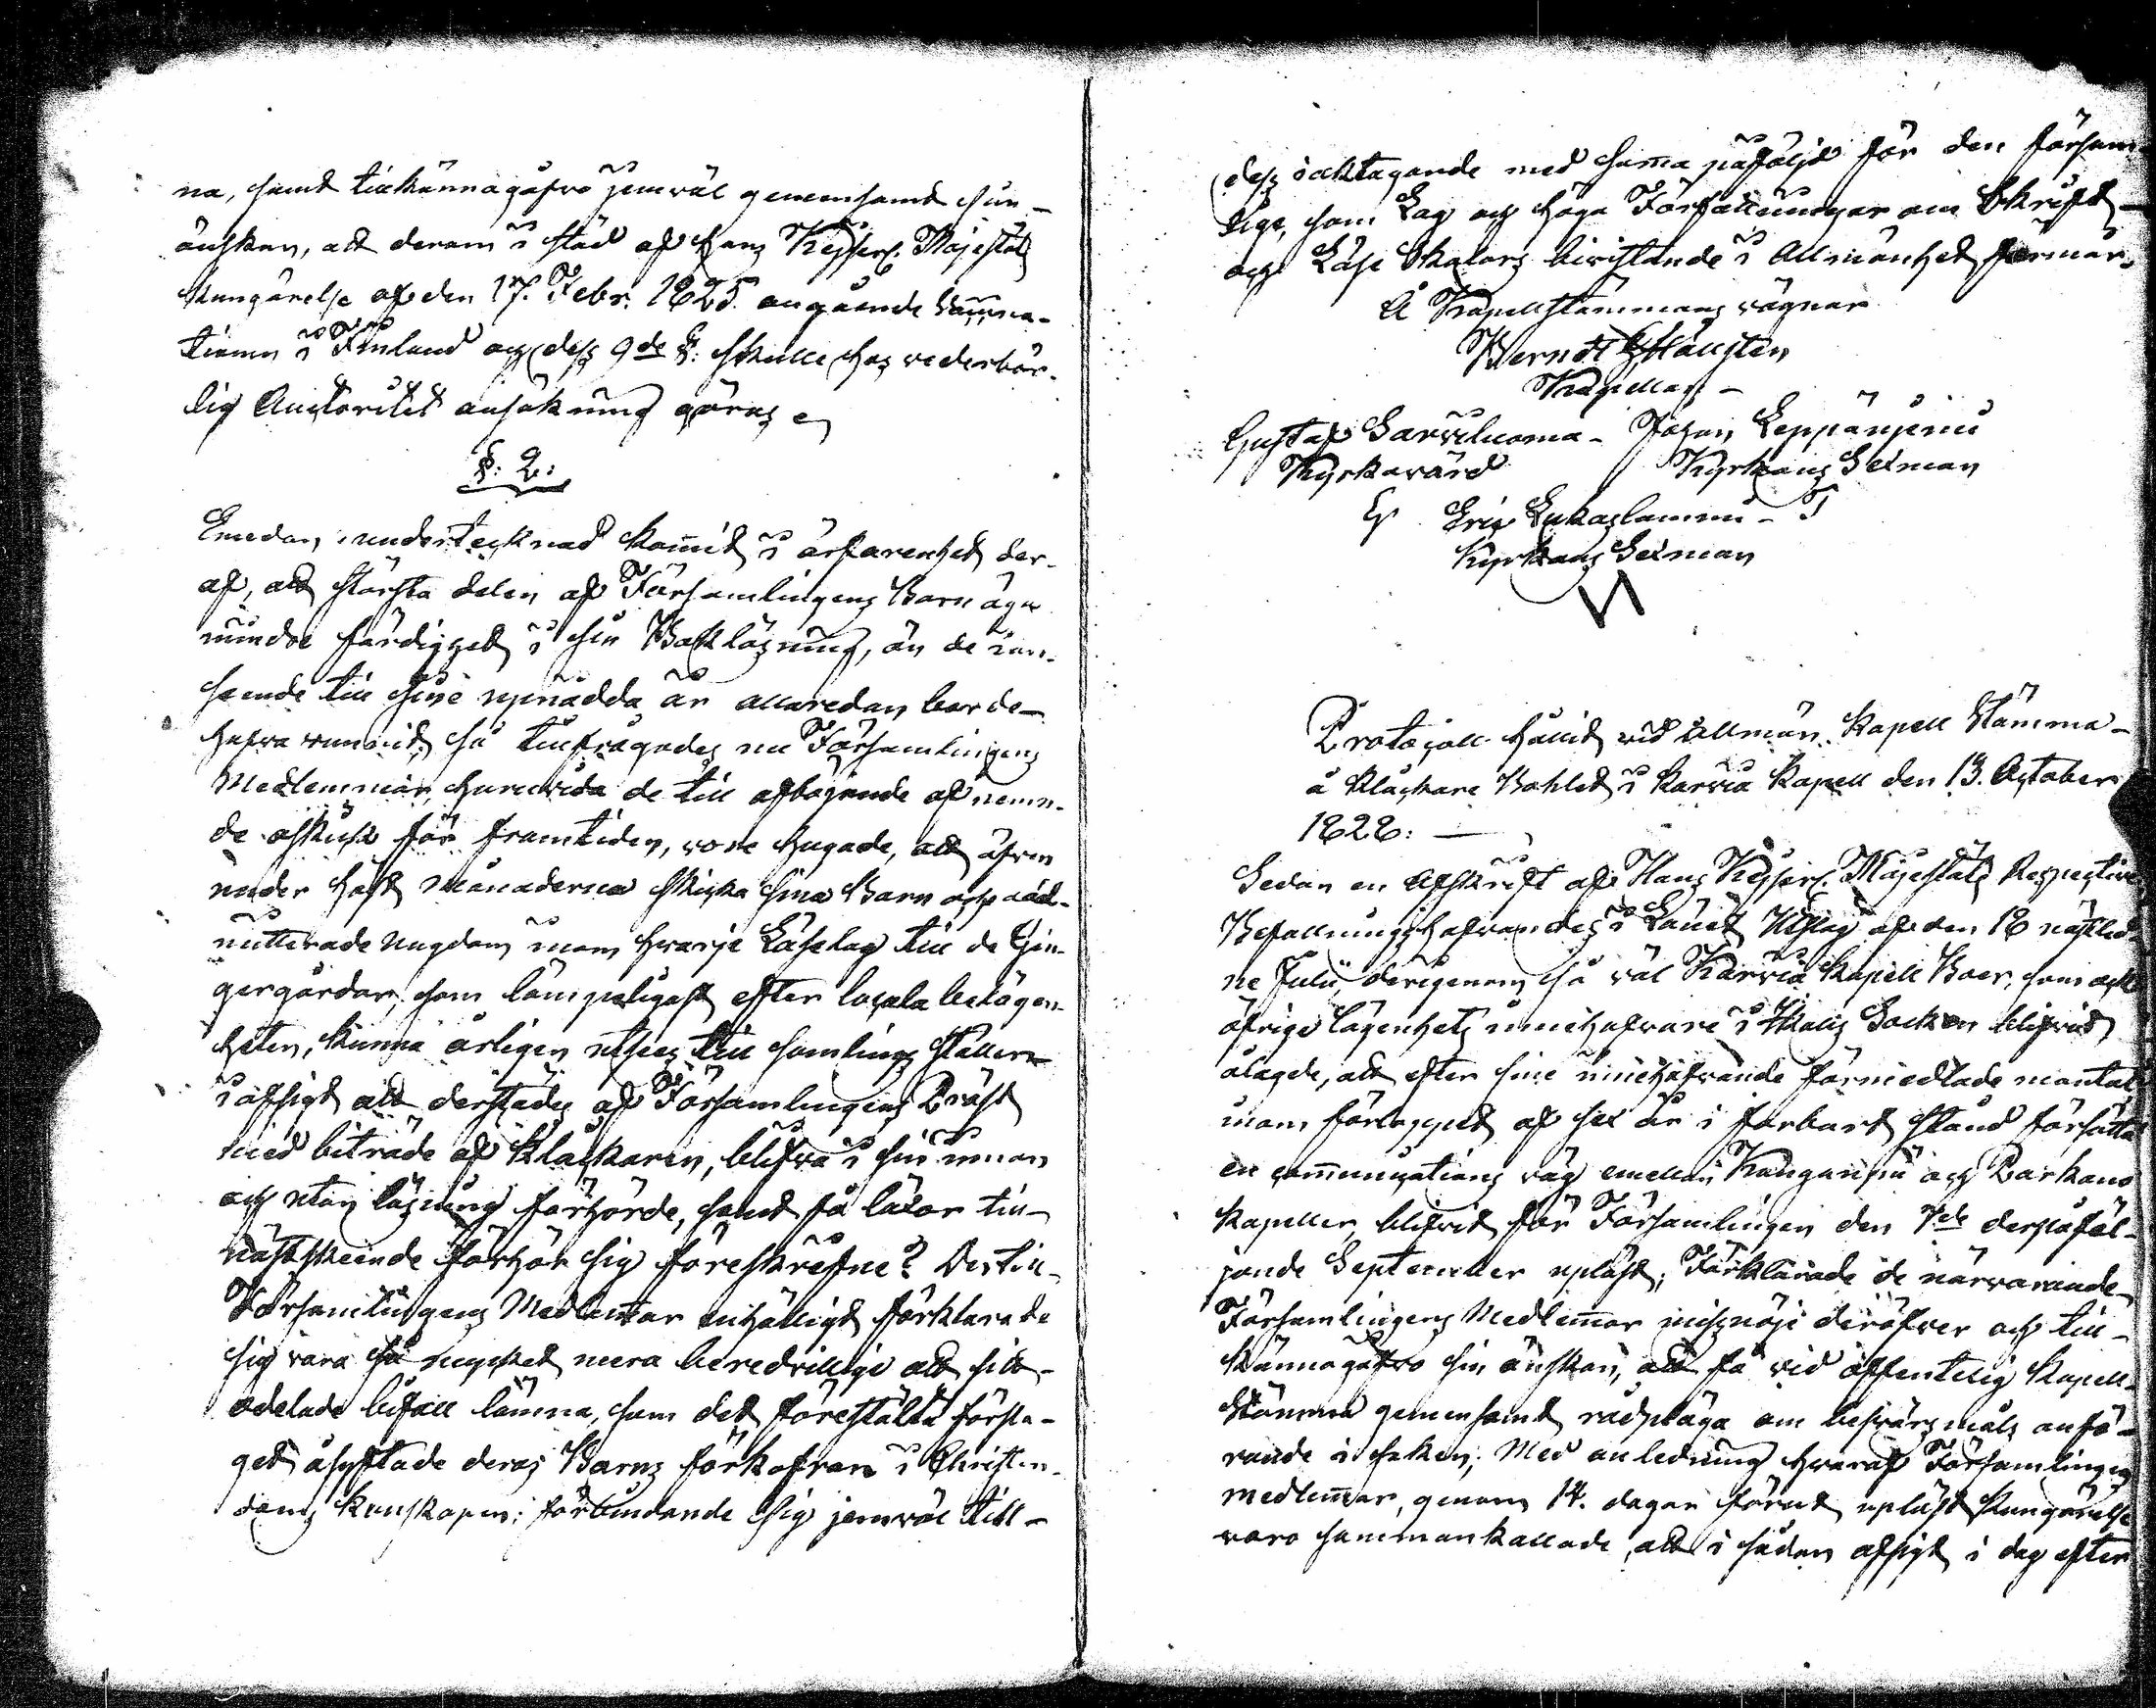 na, samt tillkännagåfvo jemväl gemensamt sin
önskan, att derom i stöd af Hans Kejserl. Majestäts
Kungörelse af den 17. Febr. 1825. angående Vaccina-
tionen i Finland och dess 9de §: skulle hos vederbör-
lig Auctoritet ansökning göras
§. 2:
Emedan undertecknad kom̅it i erfarenhet der-
af, att största delen af Församlingens Barn äga
mindre färdighet i sin Bokläsning, än de i an-
seende till sine upnådda år allaredan borde
hafva vunnit, så tillfrågades nu Församlingens
Medlemmar, huruvida de till afböjande af nemn-
de olskick för framtiden, voro hugade, att äfven
under höst månaderna skicka sina Barn och oad-
mitterade Ungdom inom hvarje Läselag till de Gin-
gergårdar, som lämpeligast efter locala belägen-
heten, kunna årligen utses till samlings ställen
i afsigt att derstädes af Församlingens Präst
med biträde af Klåckaren, blifva i sin innan
och utan läsning förhörde, samt få läxor till
nästskeende förhör sig föreskrefne? Dertill
Församlingens Medlem̅ar enhälligt förklarade
sig vara så mycket mera beredvillige att sitt
odelade bifall lämna, som det föreställda försla-
get åsyftade deras Barns förkofran i Christen-
doms kunskapen; förbindande sig jemväl till
dess iakttagande med sam̅a påföljd för den försum-
lige, som Lag och höga Författningar om Skrift
och Läse Skolors bevistande i Allmänhet förmår.
Å Kapellstämmans vägnar
Berndt Häggsten
Kapellan
Gustaf Sarveluoma Johan Leppänjemi
Kyrkovärd Kyrkans Sexman
Eric Lukaslammi
Kyrkans Sexman
Protocoll hållit vid allmän Kapell Stämma
å Klåckare Bohlet i Karvia Kapell den 13. October
1828:
Sedan en Afskrift af Hans Kejserl. Majestäts Respective
Befallningshafvandes i Länet Utslag af den 18 nästled-
ne Julii, derigenom så väl Karvia Kapell Boer, som ock
öfrige lägenhets innehafvare i Ikalis Socken blifvit
ålagde, att efter sine innehafvande förmedlade mantal
inom förloppet af sex år i farbart stånd försätta
en com̅unications väg emellan Kangariemi och Parkano
Kapeller, blifvit för Församlingen den 7de derpåföl-
jande September upläst; Förklarade de närvarande
Församlingens Medlem̅ar misnöje deröfver och till-
kännagåfvo sin önskan, att få vid offentelig Kapell
Stämma gemensamt rådpläga om besvärs måls anfö-
rande i saken; Med anledning hvaraf Församlingens
medlem̅ar, genom 14. dagar förut upläst Kungörelse
voro sammankallade, att i sådan afsigt i dag efter